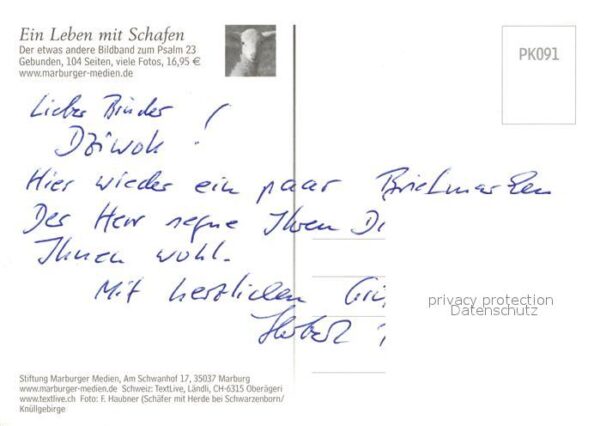 Ein Leben mit Schafen
Der etwas andere Bildband zum Psalm 23
Gebunden, 104 Seiten, viele Fotos, 16,95 €
www.marburger-medien.de
PK091
Lieber Bruder
Dziwok!
Hier wieder ein paar Briefmarken
Der Herr segne Ihren
Ihnen wohl.
Mit herzlichen
privacy protection
Datenschutz
Stiftung Marburger Medien, Am Schwanhof 17, 35037 Marburg
www.marburger-medien.de Schweiz: TextLive, Ländli, CH-6315 Oberägeri
www.textlive.ch Foto: F. Haubner (Schäfer mit Herde bei Schwarzenborn/
Knüllgebirge